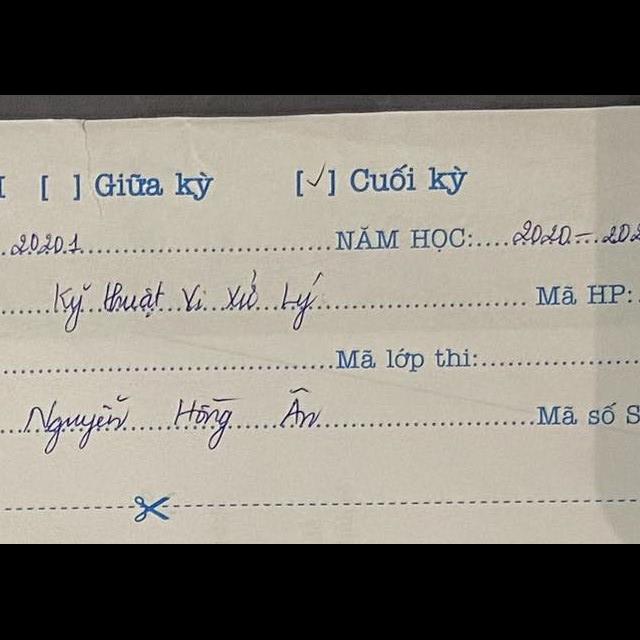 [ ] Giữa kỳ [✓] Cuối kỳ
20201 NĂM HỌC: 2020 - 202
Kỹ thuật Vi Xử Lý Mã HP:
Mã lớp thi:
Nguyễn Hồng Ân Mã số S